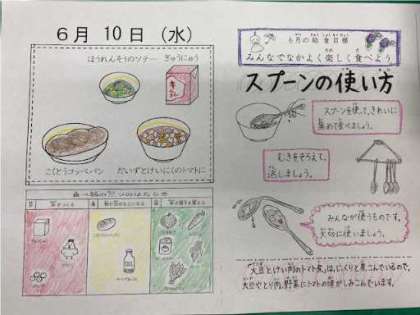 6月 10日 (水)
ほうれんそうのソテー ぎゅうにゅう
こくとうコッペパン だいずとけいにくのトマトに
6月の給食目標
みんなでなかよく楽しく食べよう
スプーンの使い方
スプーンを使って、きれいに
集めて食べましょう。
むきをそろえて、
返しましょう。
みんなが使うものです。
大切に使いましょう。
大豆とけい肉のトマト煮は、じっくりと煮こんでいるので、
大豆やとり肉、野菜にトマトの味がしみこんでいます。